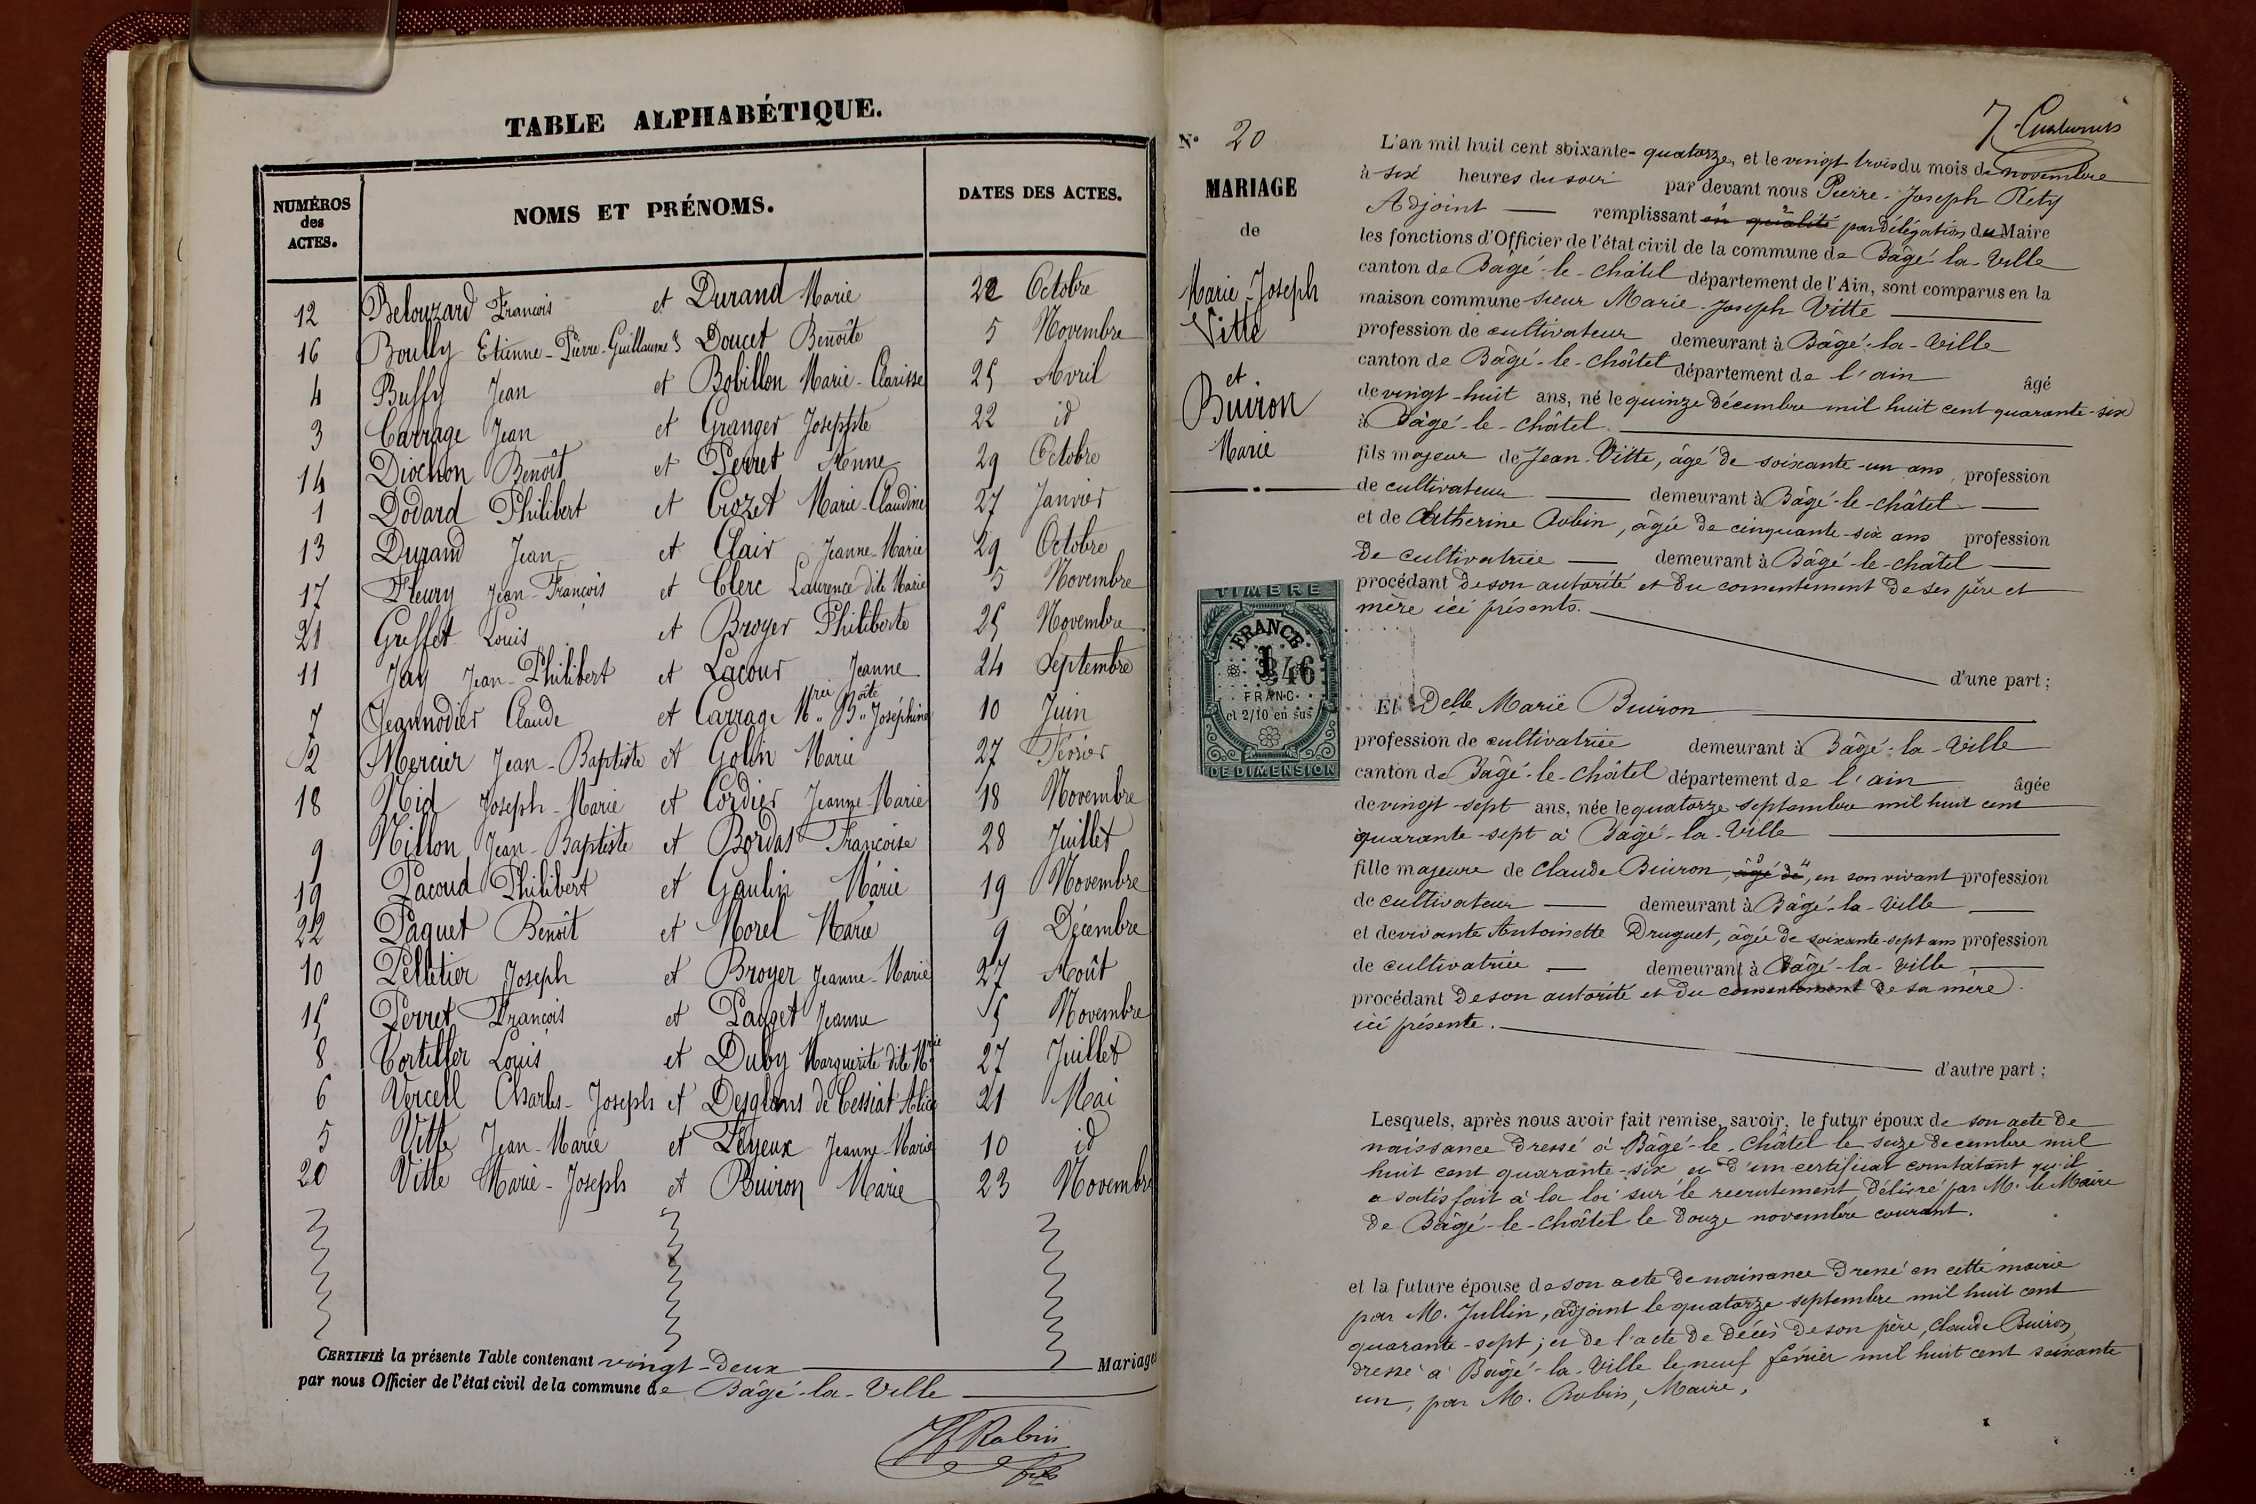 TABLE ALPHABÉTIQUE.
NUMÉROS des ACTES. NOMS ET PRÉNOMS. DATES DES ACTES.
12 Belouzard François et Durand Marie 22 Octobre
16 Boully Etienne-Pierre-Guillaume & Doucet Benoîte 5 Novembre
4 Buffy Jean et Bobillon Marie-Clarisse 25 Avril
3 Carrage Jean et Granger Josephte 22 id
14 Diochon Benoît et Perret Anne 29 Octobre
1 Dodard Philibert et Crozet Marie-Claudine 27 Janvier
13 Durand Jean et Clair Jeanne-Marie 29 Octobre
17 Fleury Jean-François et Clerc Laurence dite Marie 5 Novembre
21 Greffet Louis et Broyer Philiberte 25 Novembre
11 Jay Jean-Philibert et Lacour Jeanne 24 Septembre
7 Jeannodier Claude et Carrage Mrei Boîte Joséphine 10 Juin
2 Mercier Jean-Baptiste et Golin Marie 27 Février
18 Nid Joseph-Marie et Cordier Jeanne-Marie 18 Novembre
9 Nillon Jean-Baptiste et Bordat Françoise 28 Juillet
19 Pacoud Philibert et Gaulin Marie 19 Novembre
22 Paquet Benoît et Morel Marie 9 Décembre
10 Pelletier Joseph et Broyer Jeanne-Marie 27 Août
15 Perret François et Pauget Jeanne 5 Novembre
8 Tortiller Louis et Duby Marguerite dite Mrie 27 Juillet
6 Vercell Charles-Joseph et Desglans de Cessiat Alix 21 Mai
5 Vitte Jean-Marie et Feyeux Jeanne-Marie 10 id
20 Vitte Marie-Joseph et Buiron Marie 23 Novembre
CERTIFIÉ la présente Table contenant vingt-deux Mariages
par nous Officier de l'état civil de la commune de Bâgé-la-Ville
Robin
fils
No 20
MARIAGE
de
Marie-Joseph
Vitte
et
Buiron
Marie
TIMBRE
FRANCE
1
346
FRANC
et 2/10 en sus
DE DIMENSION
7
L'an mil huit cent soixante-quatorze, et le vingt trois du mois de novembre
à six heures du soir par devant nous Pierre-Joseph Réty
Adjoint remplissant en qualité par délégation du Maire
les fonctions d'Officier de l'état civil de la commune de Bâgé-la-Ville
canton de Bâgé-le-châtel département de l'Ain, sont comparus en la
maison commune sieur Marie-Joseph Vitte
profession de cultivateur demeurant à Bâgé-la-Ville
canton de Bâgé-le-châtel département de l'ain âgé
de vingt-huit ans, né le quinze décembre mil huit cent quarante-six
à Bâgé-le-châtel
fils majeur de Jean Vitte, âgé de soixante-un ans, profession
de cultivateur demeurant à Bâgé-le-châtel
et de Catherine Robin, âgée de cinquante-six ans profession
de cultivatrice demeurant à Bâgé-le-châtel
procédant de son autorité et du consentement de ses père et
mère ici présents.
d'une part;
Et Delle Marie Buiron
profession de cultivatrice demeurant à Bâgé-la-Ville
canton de Bâgé-le-châtel département de l'ain âgée
de vingt-sept ans, née le quatorze septembre mil huit cent
quarante-sept à Bâgé-la-Ville
fille majeure de Claude Buiron, âgé de, en son vivant profession
de cultivateur demeurant à Bâgé-la-Ville
et de vivante Antoinette Druguet, âgée de soixante-sept ans profession
de cultivatrice demeurant à Bâgé-la-Ville
procédant de son autorité et du consentement de sa mère
ici présente.
d'autre part;
Lesquels, après nous avoir fait remise, savoir, le futur époux de son acte de
naissance dressé à Bâgé-le-Châtel le seize décembre mil
huit cent quarante-six et d'un certificat constatant qu'il
a satisfait à la loi sur le recrutement, délivré par M. le Maire
de Bâgé-le-Châtel le douze novembre courant.
et la future épouse de son acte de naissance dressé en cette mairie
par M. Jullin, adjoint le quatorze septembre mil huit cent
quarante-sept; et de l'acte de décès de son père, Claude Buiron,
dressé à Bâgé-la-Ville le neuf février mil huit cent soixante
un, par M. Robin, Maire,